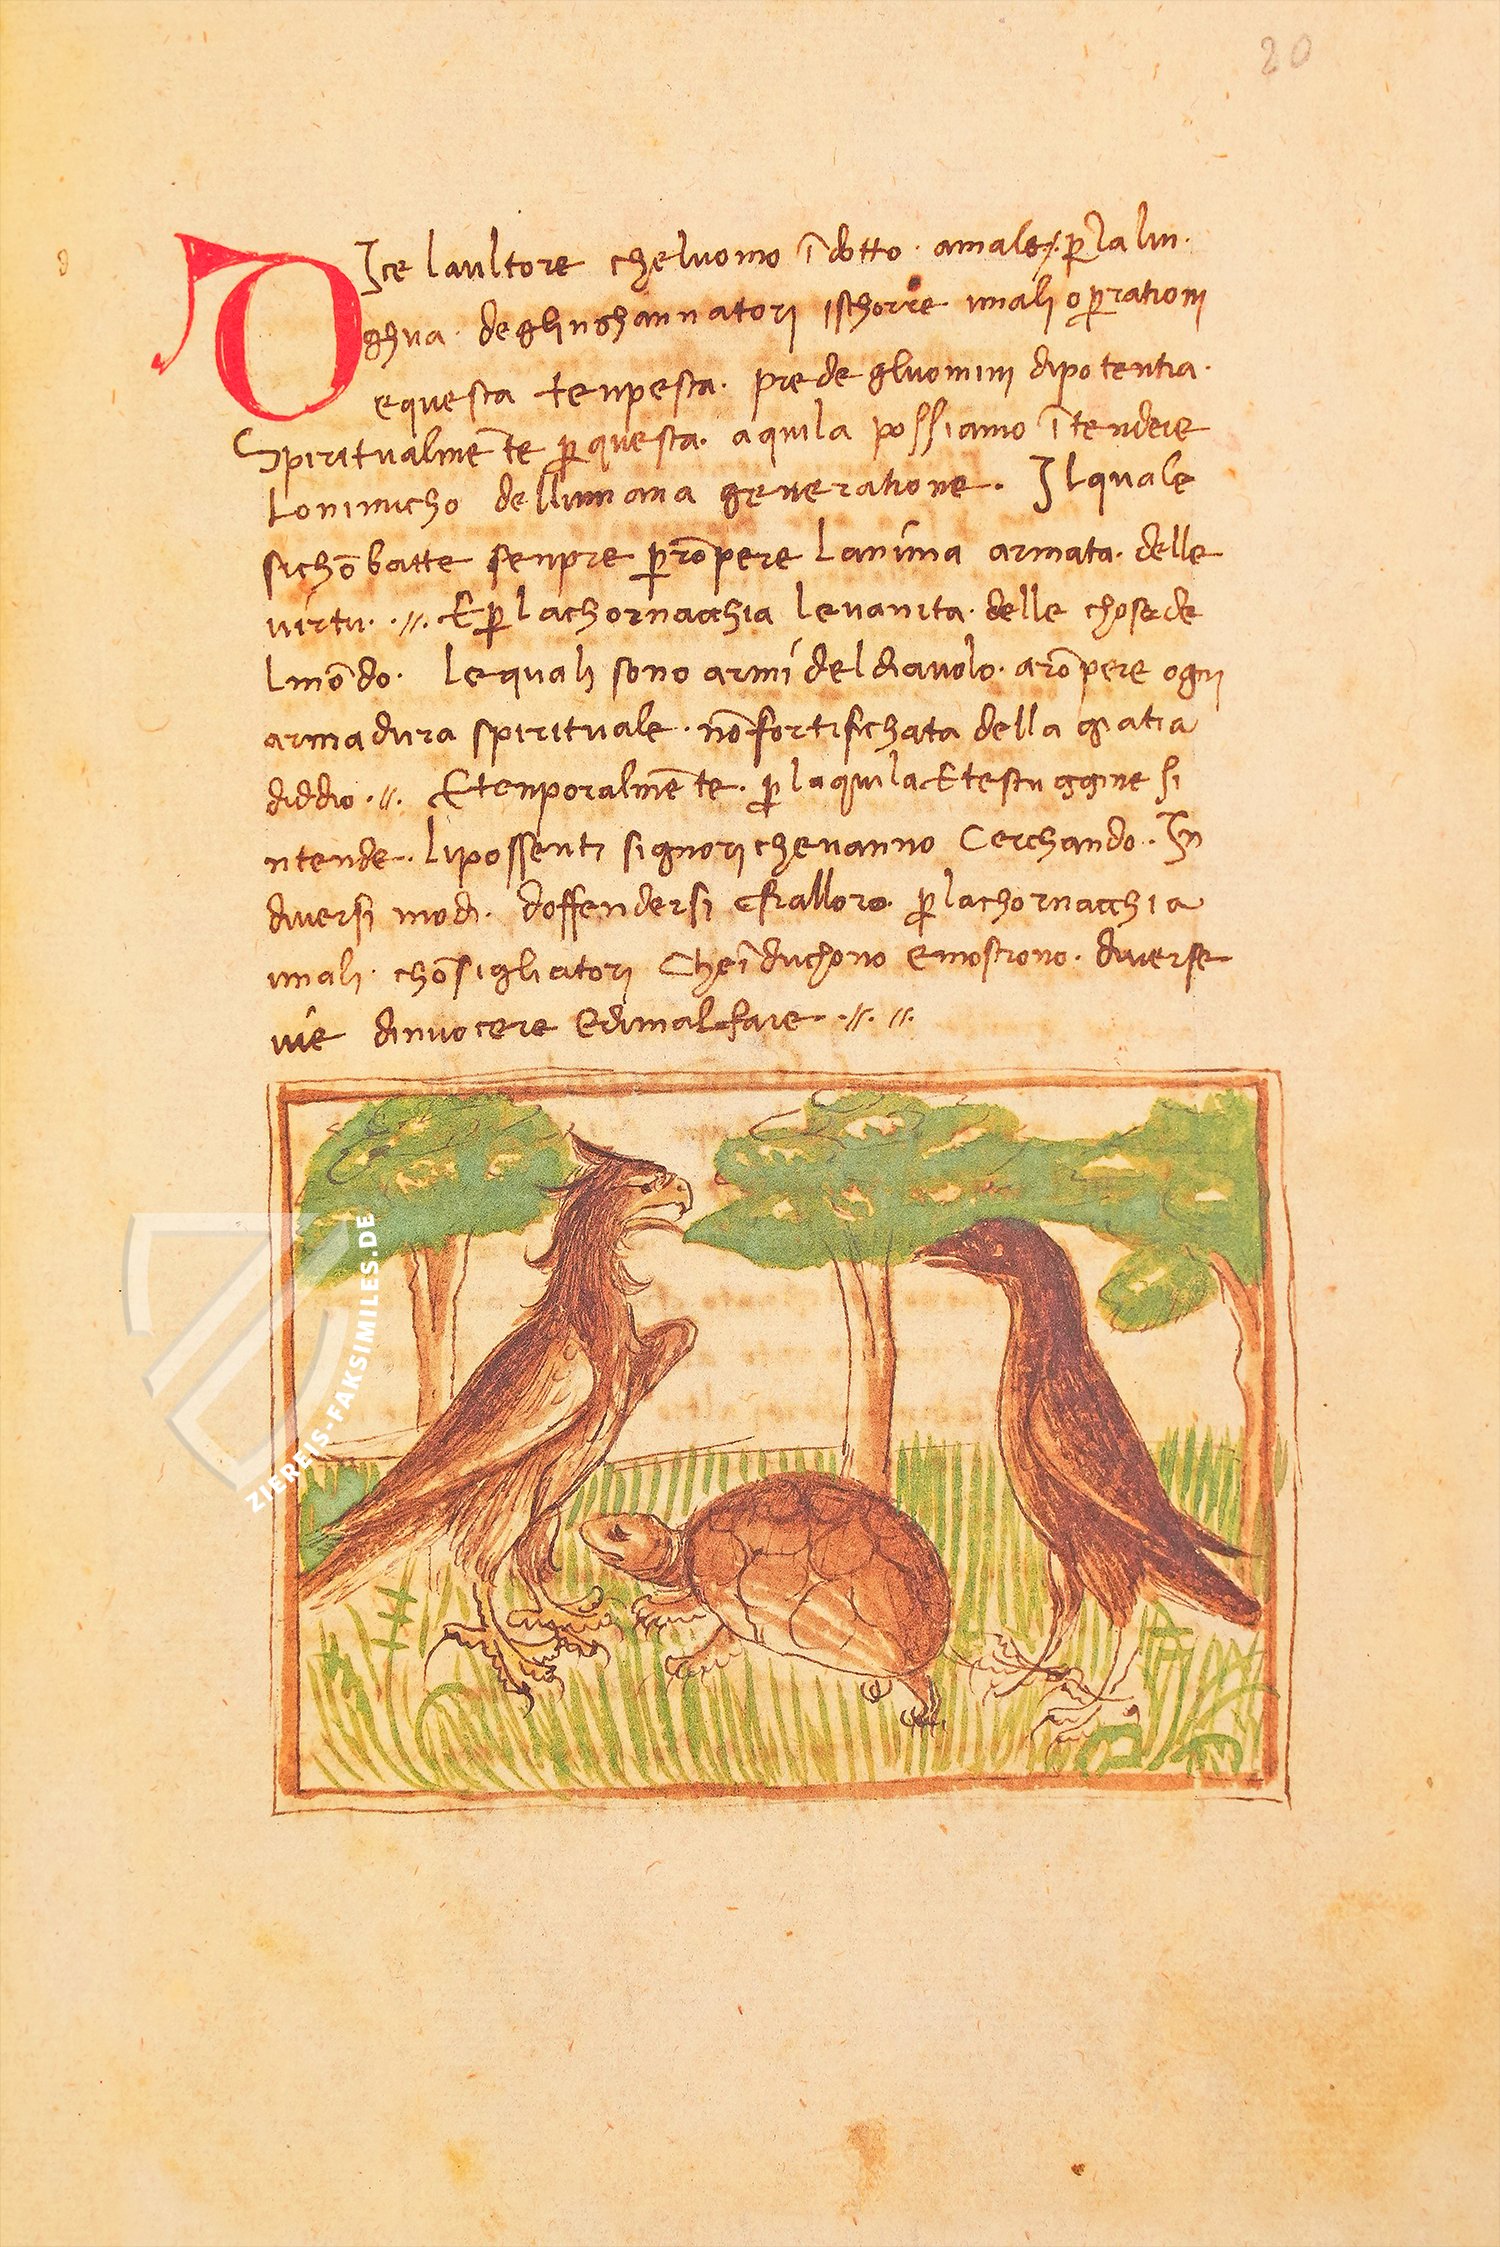 20
DIce laultore cheluomo ī dotto · amale · p̱ la lin·
ghua · deglinghannatori ischorre imali op̱rationi
equesta tenpesta · prede gluomini dipotentia ·
Spiritualmēte p̱ questa · aquila possiamo ītendere
Lonimicho dellumana generatione · Ilquale
sichōbatte senpre p̱ rōpere Lanima armata · delle
virtu · · // · E p̱ lachornacchia levanita · delle chose de
lmōdo · lequali sono armi del diavolo · arōpere ogni
armadura spirituale · nō fortifichata della gratia
diddio · // · Etenporalmēte · p̱ laquila Etestuggine si
ntende · lipossenti signori chevanno Cerchando · In
diversi modi · doffendersi Fralloro · p̱ lachornacchia
imali · chōsigliatori Cheīduchono emostrono · diverse
vie dinuocere Edimalfare · · // · // ·
ZIEREIS-FAKSIMILES.DE